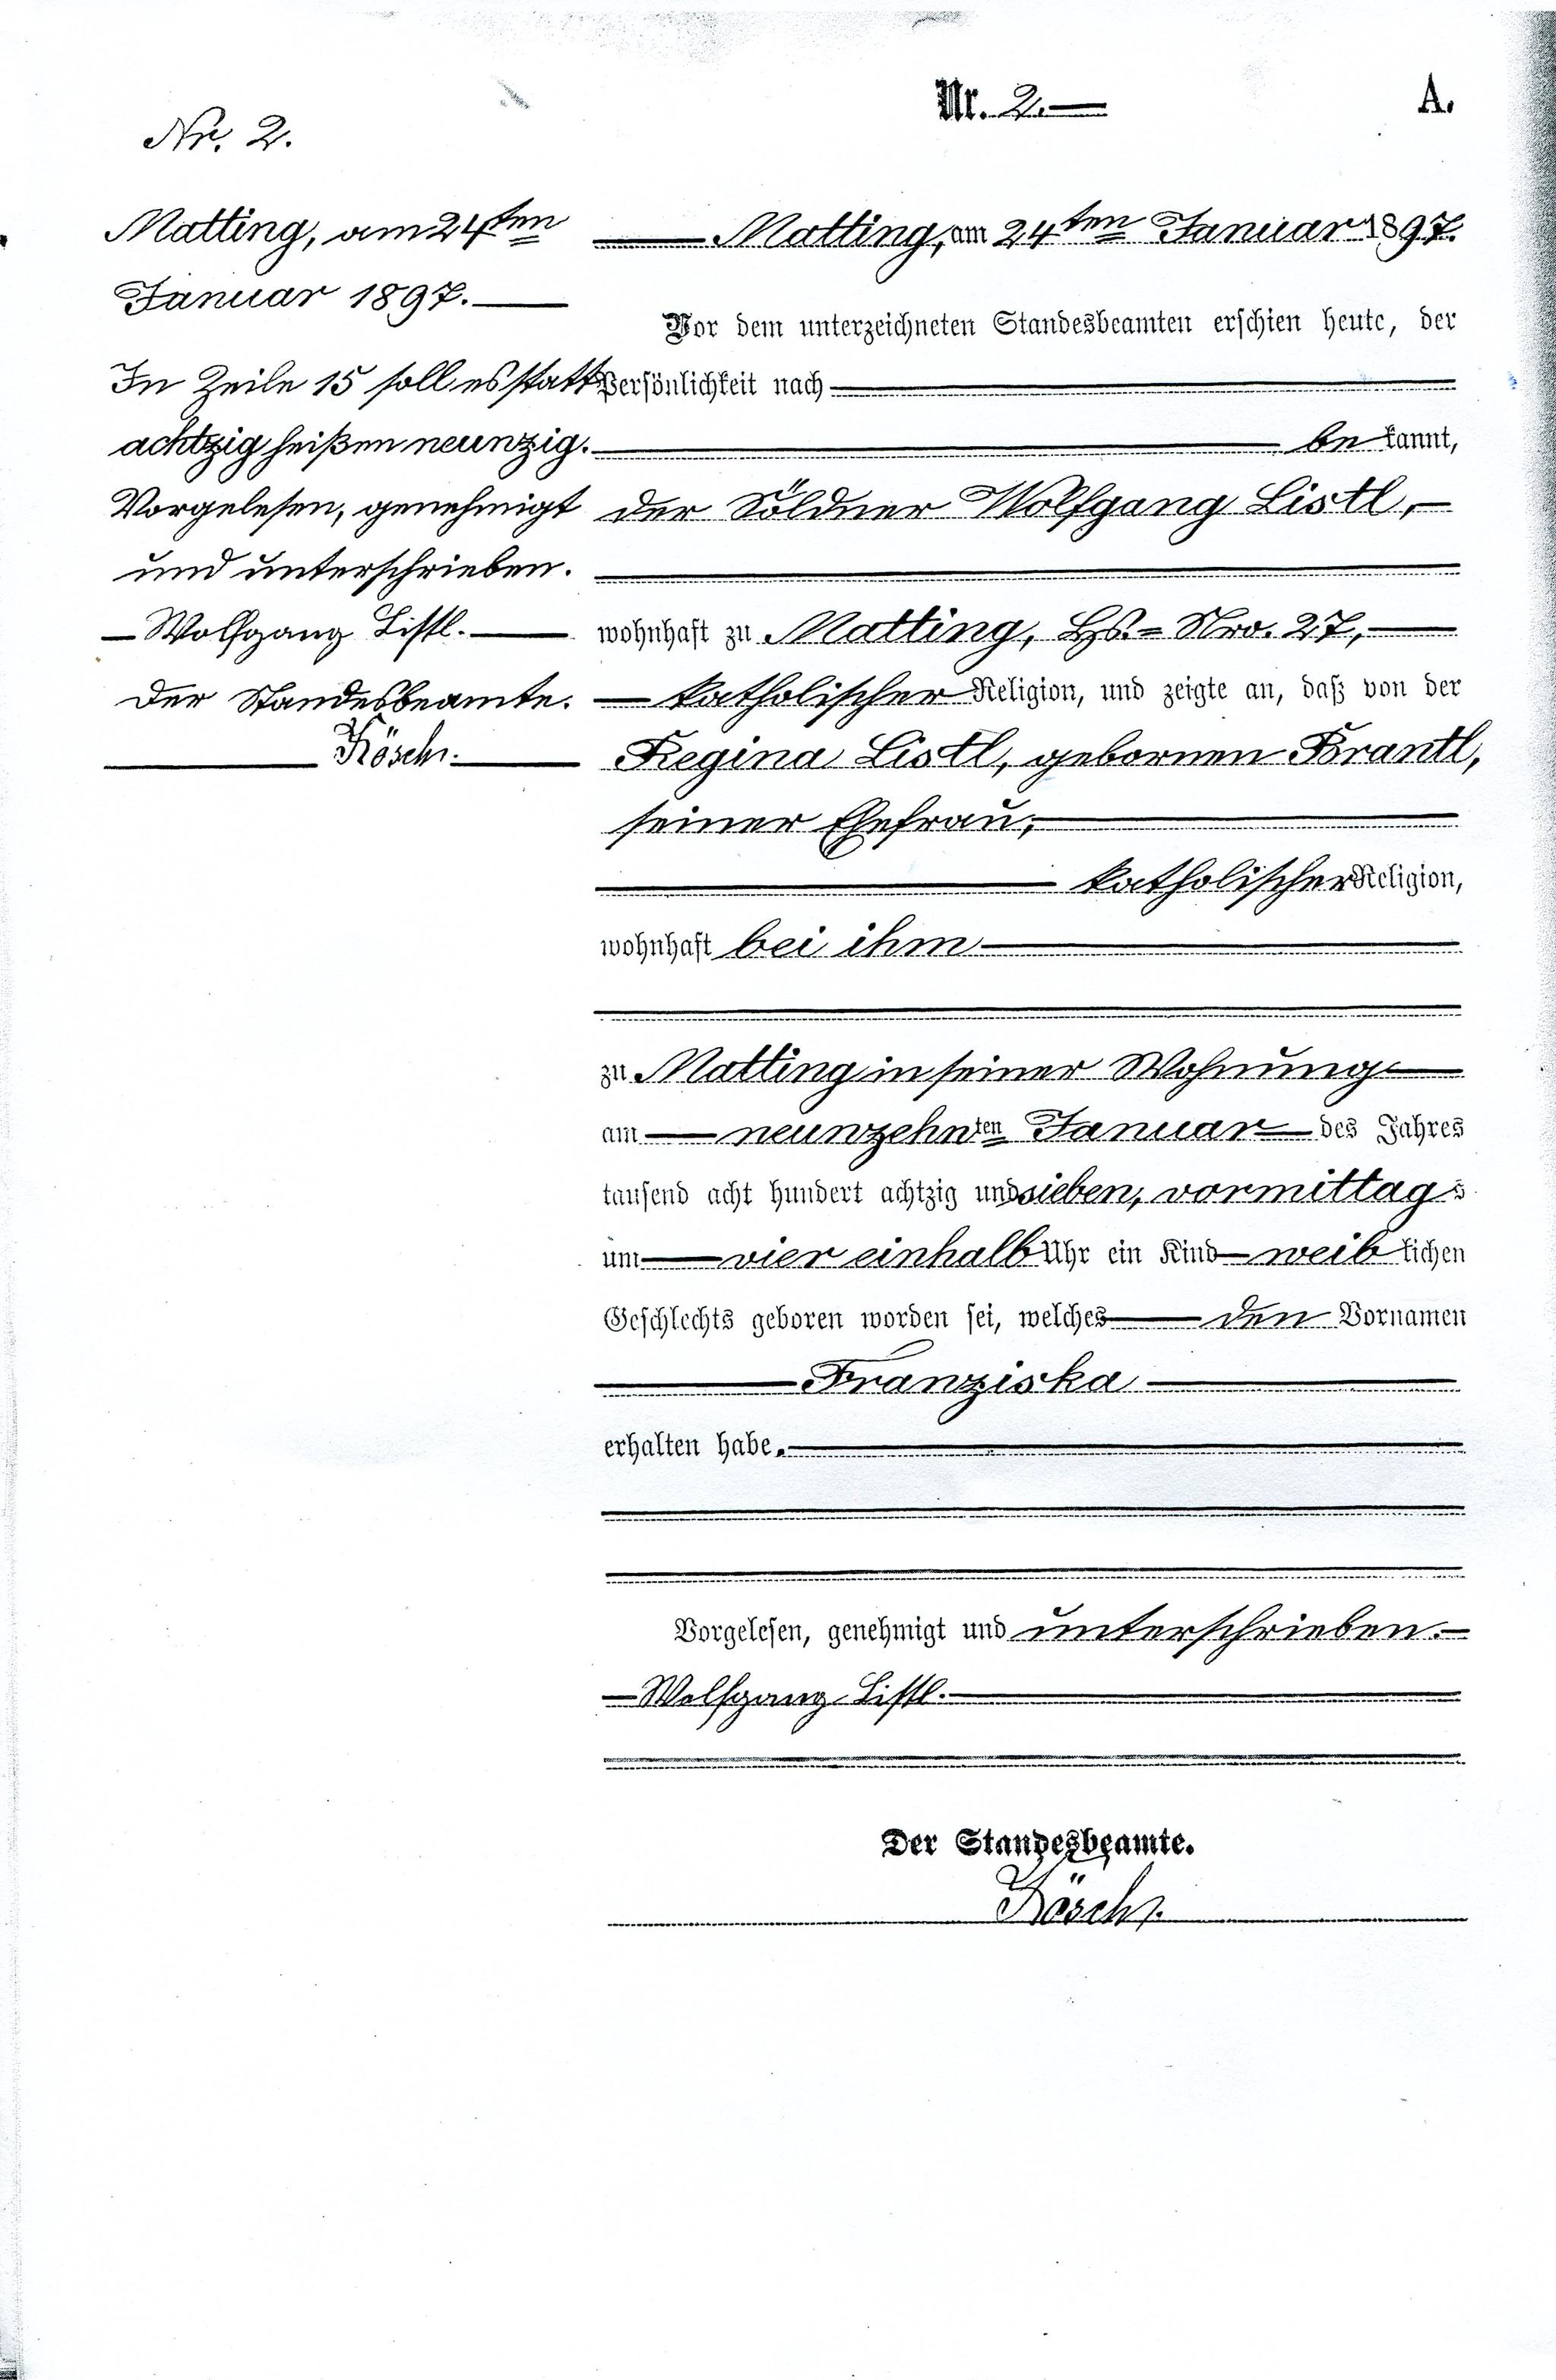 Nr. 2.
Matting, am 24ten
Januar 1897.
In Zeile 15 soll es statt
achtzig heißen neunzig.
Vorgelesen, genehmigt
und unterschrieben.
Wolfgang Listl.
Der Standesbeamte.
Kösch.
Nr. 2. A.
Matting, am 24ten Januar 1897.
Vor dem unterzeichneten Standesbeamten erschien heute, der
Persönlichkeit nach
bekannt,
der Söldner Wolfgang Listl,
wohnhaft zu Matting, Hs.=Nro. 27,
katholischer Religion, und zeigte an, daß von der
Regina Listl, gebornen Brantl,
seiner Ehefrau,
katholischer Religion,
wohnhaft bei ihm
zu Matting in seiner Wohnung
am neunzehnten Januar des Jahres
tausend acht hundert achtzig und sieben, vormittags
um vier einhalb Uhr ein Kind weiblichen
Geschlechts geboren worden sei, welches den Vornamen
Franziska
erhalten habe.
Vorgelesen, genehmigt und unterschrieben.
Wolfgang Listl.
Der Standesbeamte.
Kösch.